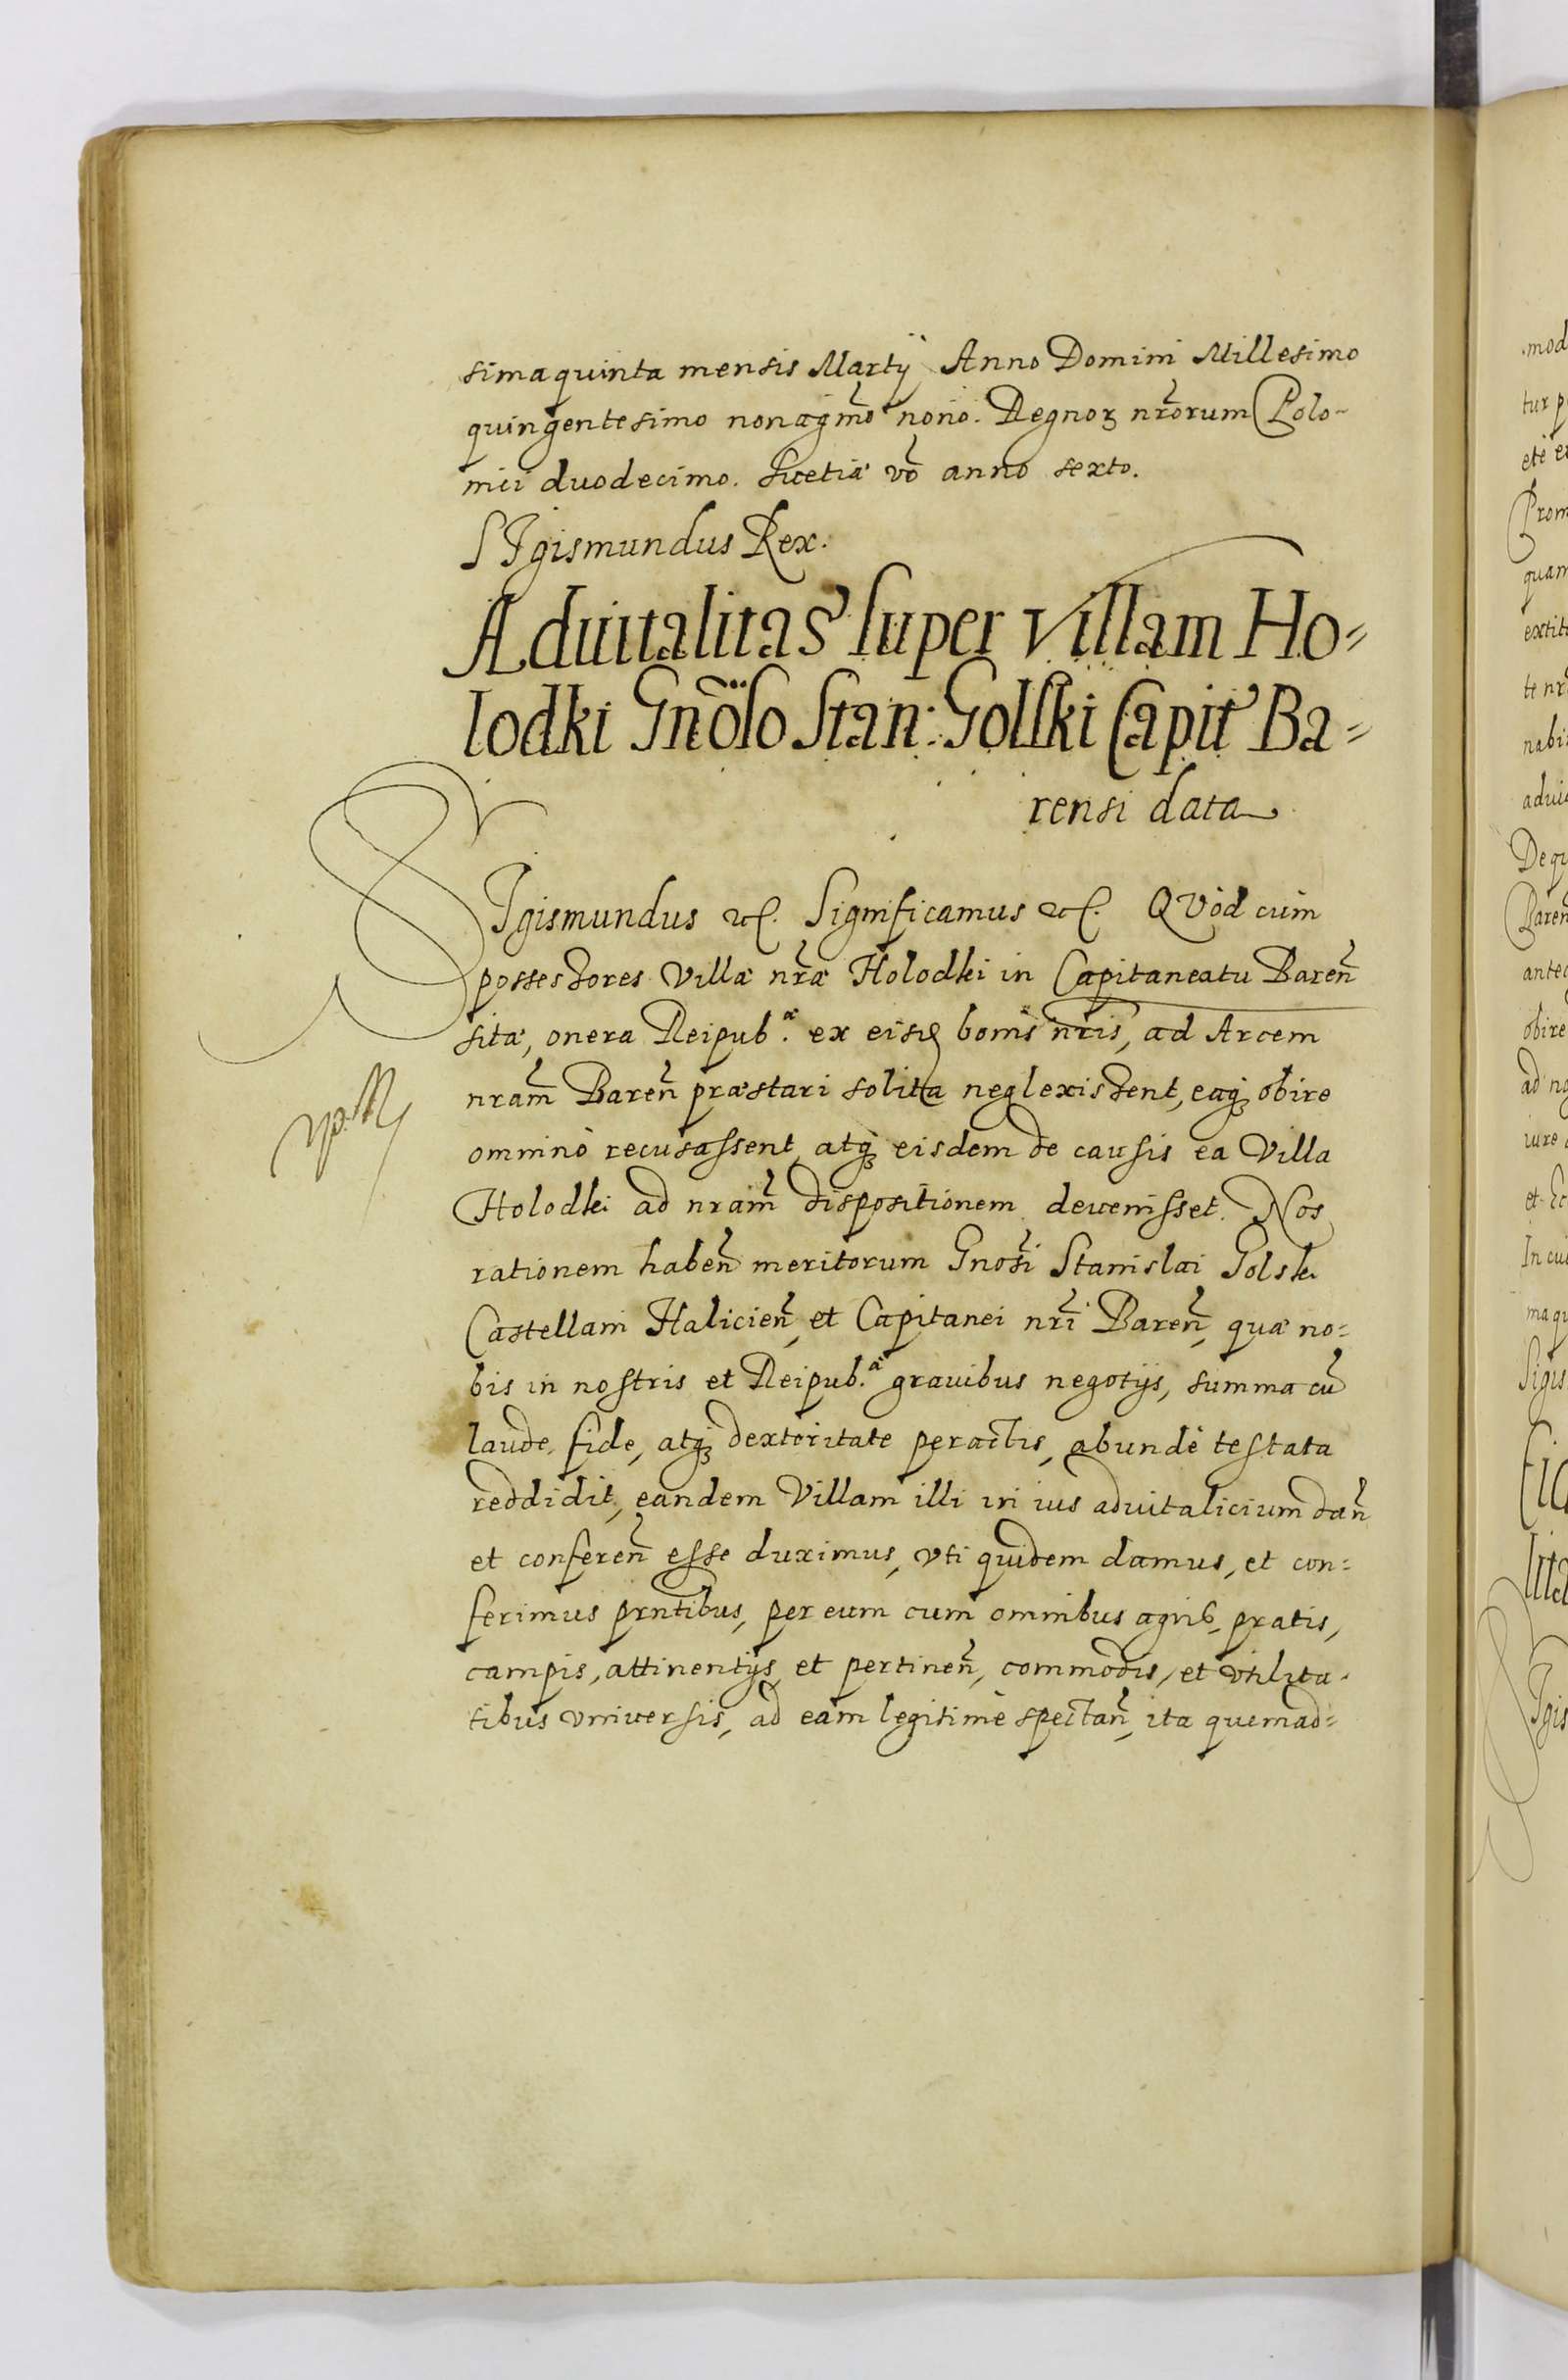 sima quinta mensis Martij Anno Domini Millesimo
quingentesimo nonagm̃o nono. Regnoꝝ nr̃orum Polo-
nici duodecimo. Suetiæ võ anno sexto.
SIgismundus Rex.
Aduitalitas super villam Ho=
lodki Gnõso Stan: Golski Capit Ba=
rensi data
SIgismundus etc. Significamus etc. QVòd cum
possessores Villæ nr̃æ Holodki in Capitaneatu Bareñ
sitæ, onera Reipub.æ ex eisd bonis nr̃is, ad Arcem
nram̃ Bareñ præstari solita neglexissent, eaq; obire
omnino recusassent, atq; eisdem de causis ea Villa
Holodki ad nram̃ dispositionem deuenisset. Nos
rationem habeñ meritorum Gnosĩ Stanislai Golski
Castellani Halicieñ, et Capitanei nrĩ Bareñ, quæ no=
bis in nostris et Reipub.æ grauibus negotijs, summa cũ
laude, fide, atq; dexteritate peractis, abundè testata
reddidit, eandem Villam illi in ius aduitalicium dañ
et confereñ esse duximus, vti quidem damus, et con=
ferimus prntibus, per eum cum omnibus agris, pratis,
campis, attinentijs et pertineñ, commodis, et vtilita-
tibus vniuersis, ad eam legitimè spectañ, ita quemad=